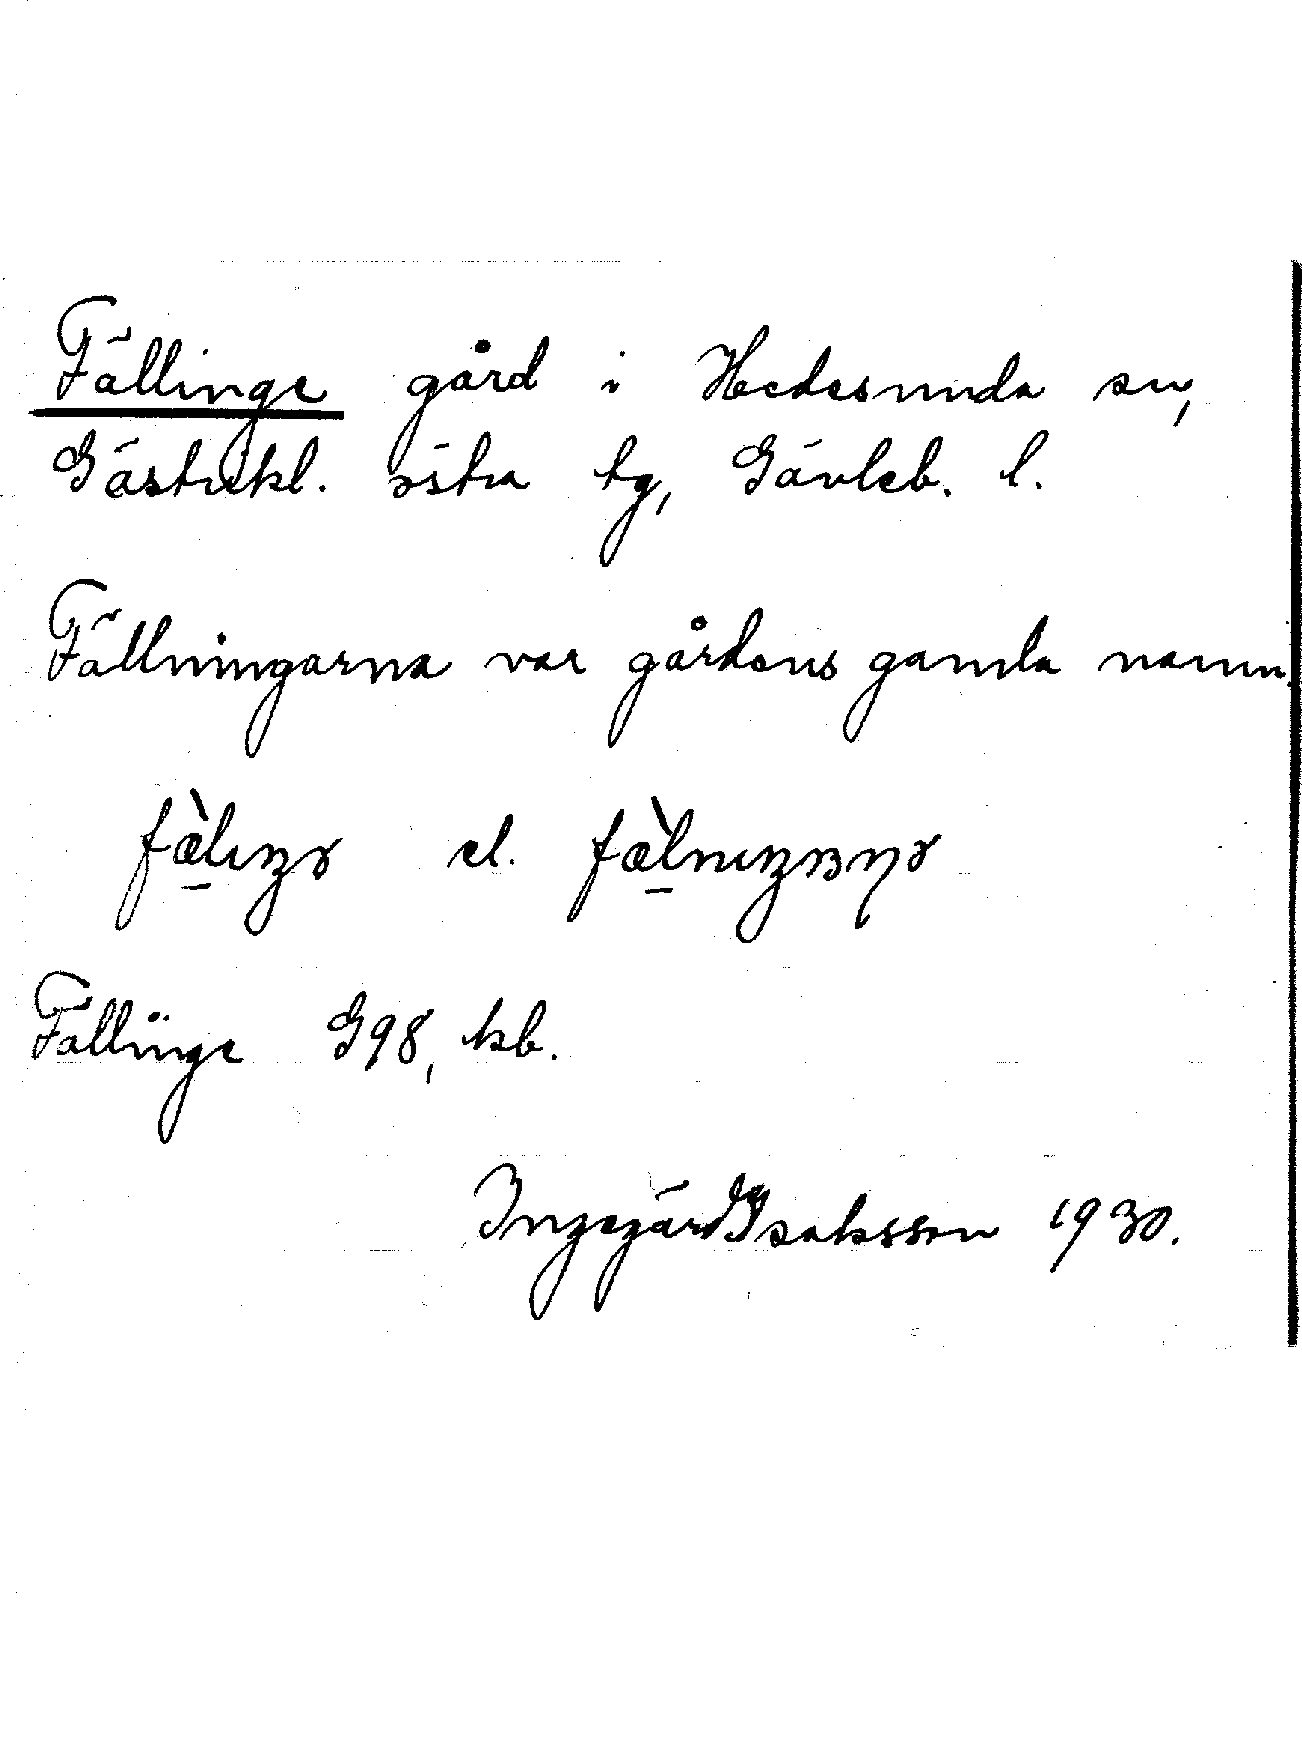 Fällinge gård i Hedesunda sn,
Gästrikl. östra tg, Gävleb. l.
Fällningarna var gårdens gamla namn.
fæ̀lıŋə el. fæ̀lnıŋaɳə
Fällinge G98, kb.
Ingegärd Isaksson 1930.